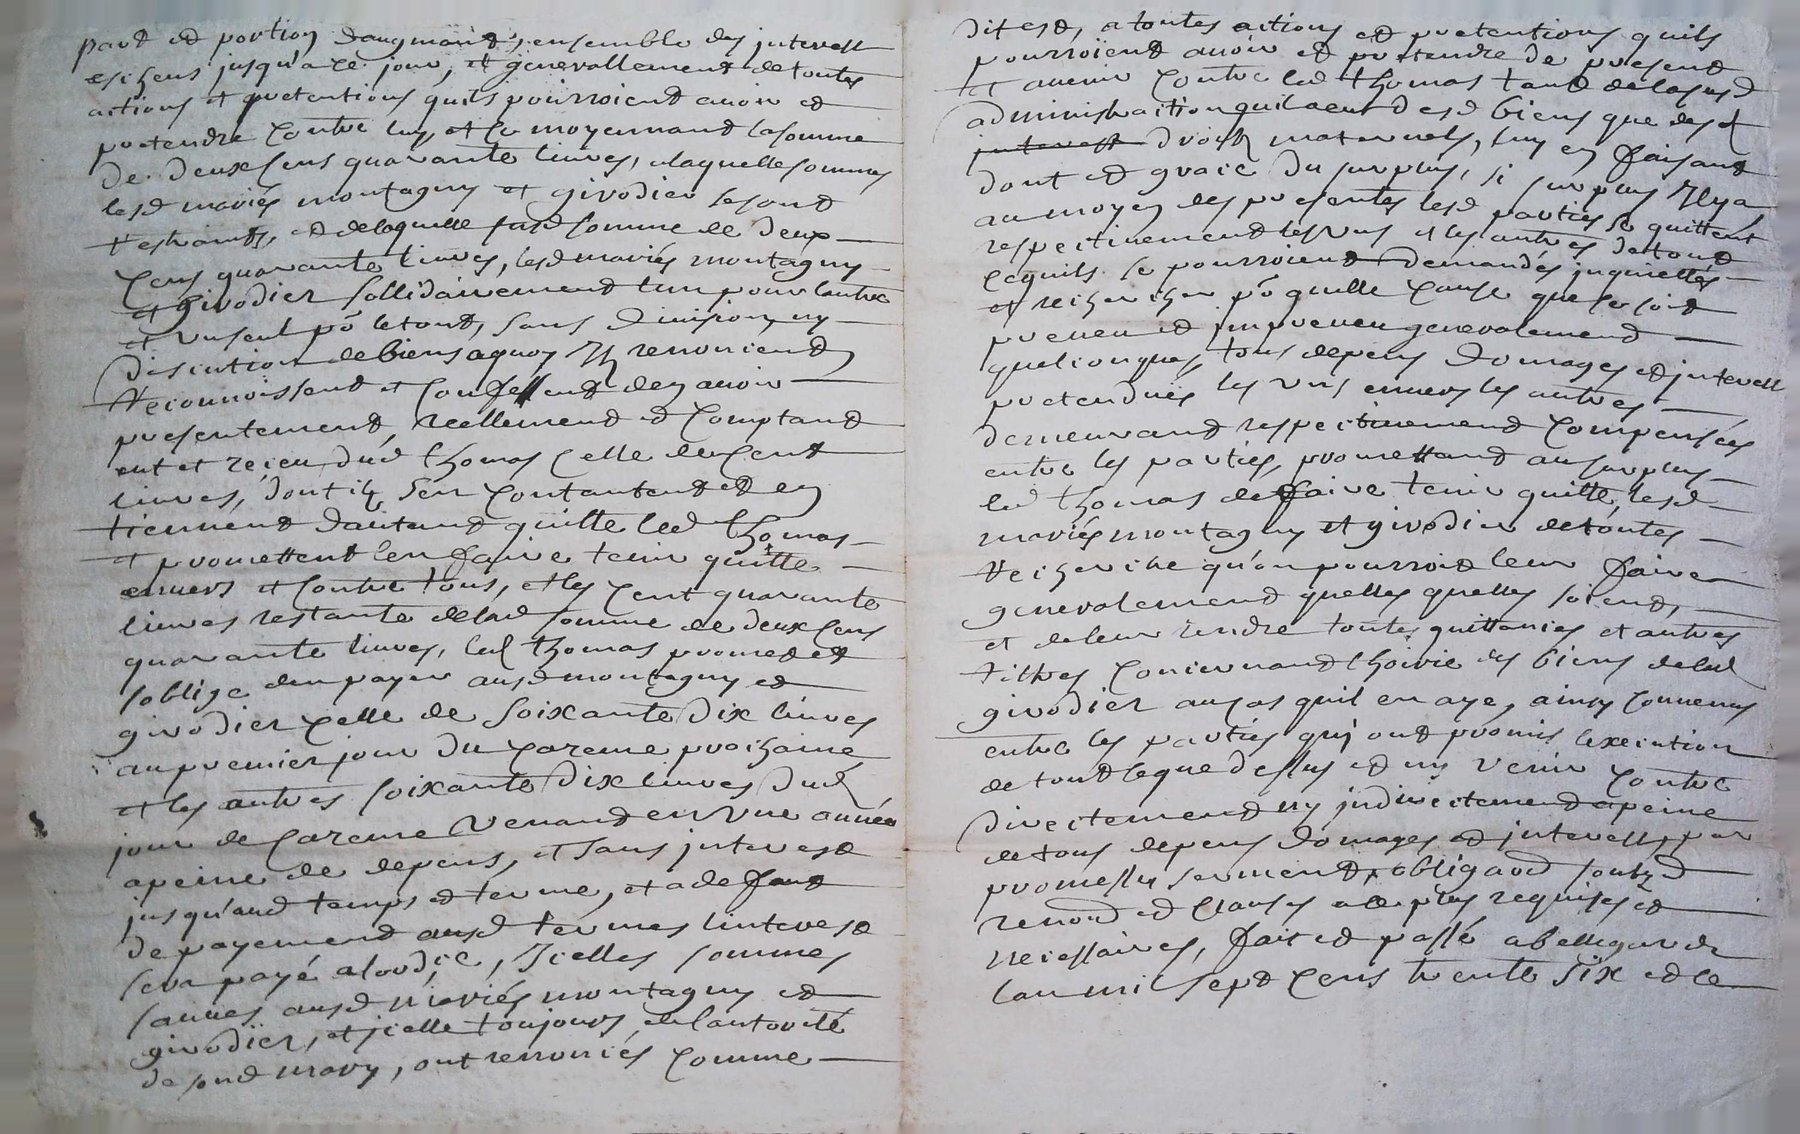 part et portion daugmant, ensemble des interest
escheus jusqua ce jour, et generallement de toutes
actions et pretentions quils pourroient avoir et
pretendre contre luy et ce moyennant la somme
de deux cens quarante livres, de laquelle somme
lesd mariés montagny et givodier se sont
restraints, et de laquelle susd somme de deux
cens quarante livres, lesd mariés montagny
et givodier sollidairement lun pour lautre
et un seul po le tout, sans division ny
discution de biens a quoy Ils renoncient
Reconnoissent et confessent den avoir
presentement reellement et comptant
eut et receu dud thomas celle de cent
livres, dont ils s'en contantent et en
tiennent dautant quitte led thomas
et promettent len faire tenir quitte
envers et contre tous, et les cent quarante
livres restante de lad somme de deux cens
quarante livres, led thomas promet et
soblige den payer ausd montagny et
givodier celle de soixante dix livres
au premier jour du careme prochaine
et les autres soixante dix livres dud
jour de careme venant en une année
a peine de depens, et sans interest
jusqu'aud temps et terme, et a defaut
de payement ausd termes linterest
sera payé a lordje, Icelles sommes
sauves ausd mariés montagny et
givodier, et icelle toujours de lautorité
de sond mary, ont renonciés comme
dit est, a toutes actions et pretentions quils
pourroient avoir et pretendre de present
et avenir contre led thomas tant de la susd
administraction quil a eut desd biens que desd
interest droits maternels, luy en faisant
dont et graic du surplus, si surplus Il y a
au moyen des presentes lesd parties se quittent
respectivement les uns et les autres de tout
ce quils se pourroient demandés inquiettés
et rechercher po quelle cause que ce soit
preveu et impreveu generalement
quelconques, tous depens domages et interest
pretendues les uns envers les autres
demeurant respectivement compensées
entre les parties, promettant au surplus
led thomas de faire tenir quitte lesd
mariés montagny et givodier de toutes
Recherche qu'on pourroit leur faire
generalement quelles quelles soient,
et de leur rendre toutes quittances et autres
tiltres concernant lhoirie des biens delad
givodier au cas quil en aye, ainsy convenus
entre les parties qui ont promis lexecution
de tout ce que dessus et ny venir contre
directement ny indirectement a peine
de tous depens domages et interest, par
promesses serment, obligaon soubzd
renond et clauses a ce plus requises et
necessaires, fait et passé a bellegarde
lan mil sept cens trente six et le